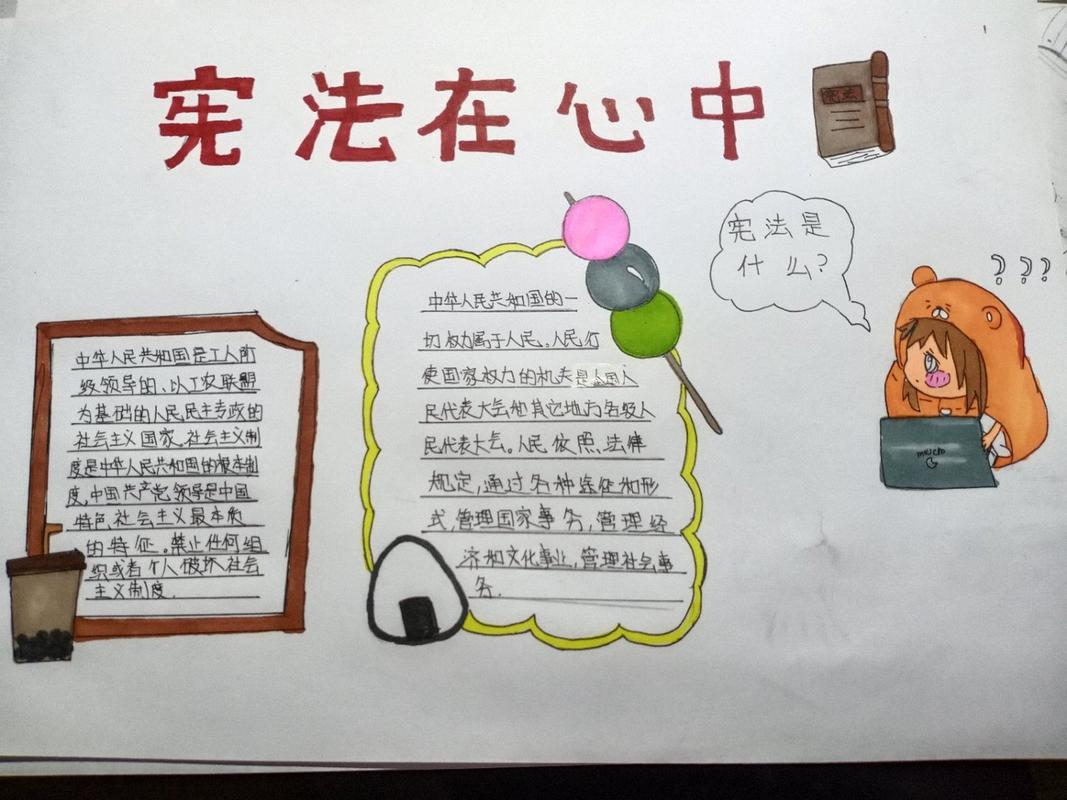 宪法在心中
宪法
宪法是
什么?
? ? ?
中华人民共和国是工人阶
级领导的、以工农联盟
为基础的人民民主专政的
社会主义国家。社会主义制
度是中华人民共和国的根本制
度。中国共产党领导是中国
特色社会主义最本质
的特征。禁止任何组
织或者个人破坏社会
主义制度.
中华人民共和国的一
切权力属于人民。人民行
使国家权力的机关是全国人
民代表大会和其它地方各级人
民代表大会。人民依照法律
规定,通过各种途径和形
式,管理国家事务,管理经
济和文化事业,管理社会事
务.